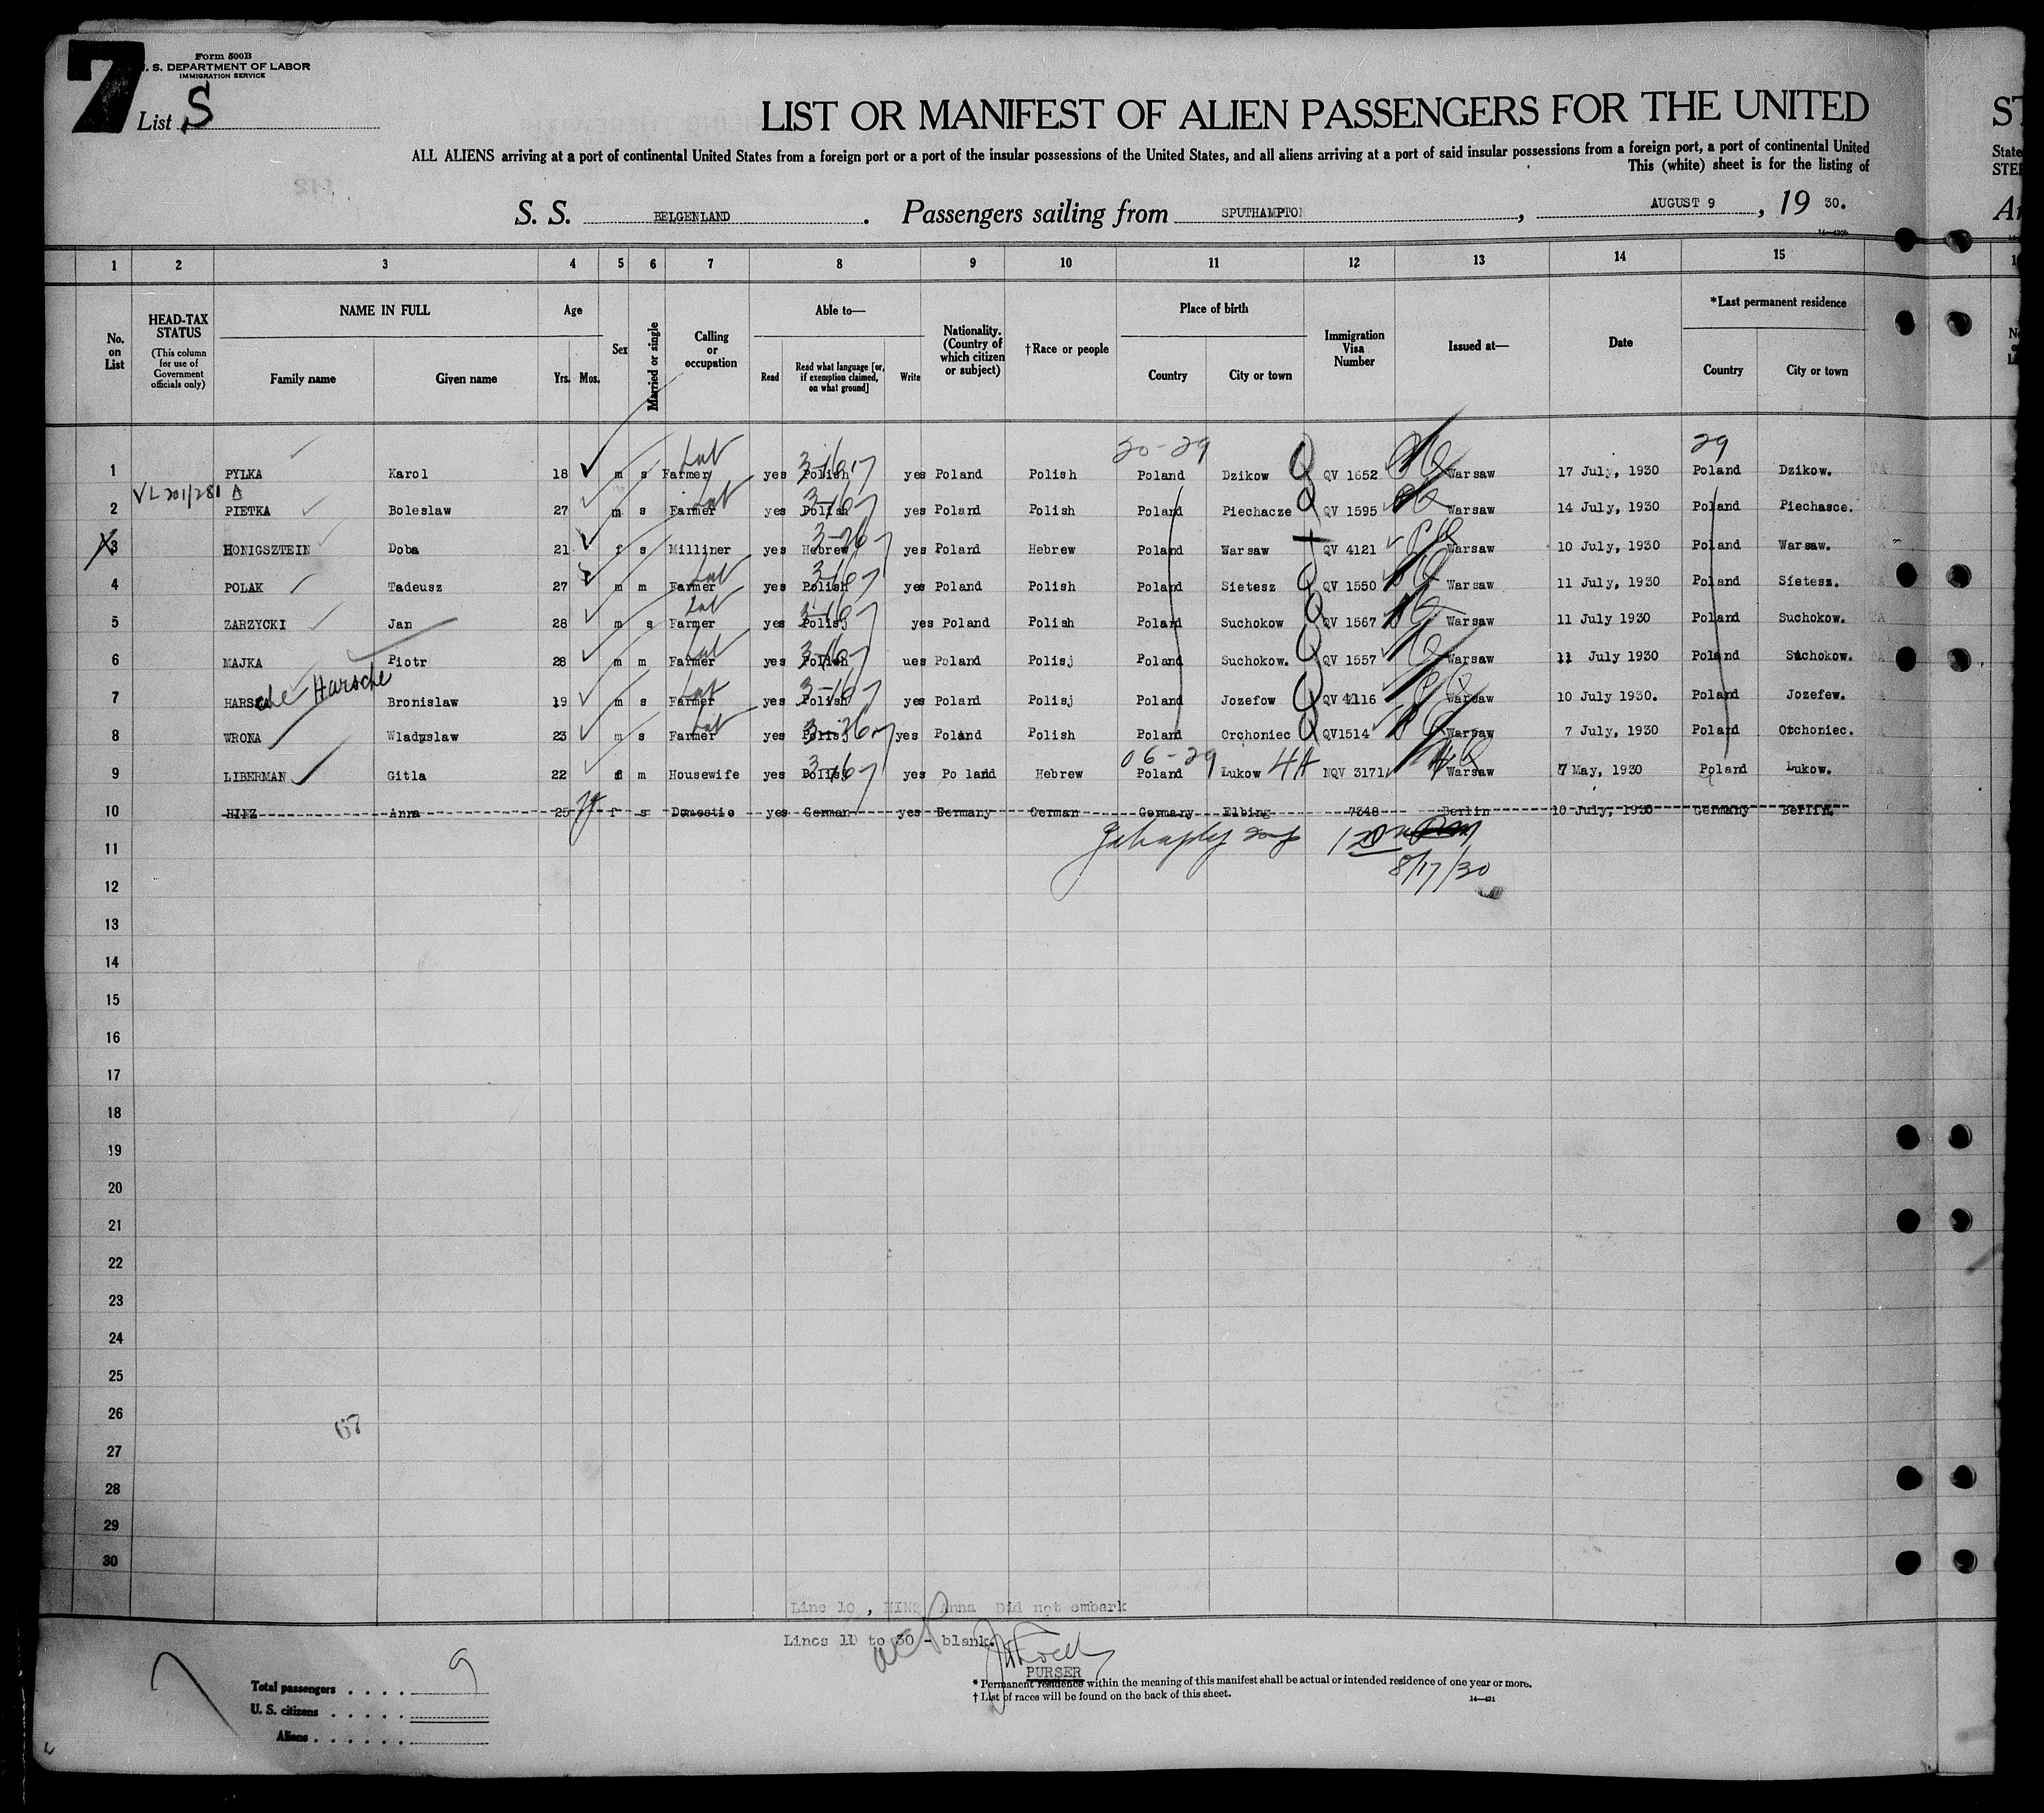 7
Form 500B
U. S. DEPARTMENT OF LABOR
IMMIGRATION SERVICE
List S
LIST OR MANIFEST OF ALIEN PASSENGERS FOR THE UNITED
ST
ALL ALIENS arriving at a port of continental United States from a foreign port or a port of the insular possessions of the United States, and all aliens arriving at a port of said insular possessions from a foreign port, a port of continental United
State
This (white) sheet is for the listing of
STEE
S. S. BELGENLAND . Passengers sailing from SPUTHAMPTON , AUGUST 9 , 19 30.
14—430b
1 2 3 4 5 6 7 8 9 10 11 12 13 14 15
No. on List
HEAD-TAX STATUS
(This column for use of Government officials only)
NAME IN FULL
Family name Given name
Age
Yrs. Mos.
Sex
Married or single
Calling or occupation
Able to—
Read Read what language [or, if exemption claimed, on what ground] Write
Nationality. (Country of which citizen or subject)
†Race or people
Place of birth
Country City or town
Immigration Visa Number
Issued at—
Date
*Last permanent residence
Country City or town
20-29 29
1 PYLKA Karol 18 m s Farmer yes Polish yes Poland Polish Poland Dzikow QV 1652 Warsaw 17 July, 1930 Poland Dzikow.
VL 201/281
2 PIETKA Boleslaw 27 m s Farmer yes Polish yes Poland Polish Poland Piechacze QV 1595 Warsaw 14 July, 1930 Poland Piechasce.
3 HONIGSZTEIN Doba 21 f s Milliner yes Hebrew yes Poland Hebrew Poland Warsaw QV 4121 Warsaw 10 July, 1930 Poland Warsaw.
4 POLAK Tadeusz 27 m m Farmer yes Polish yes Poland Polish Poland Sietesz QV 1550 Warsaw 11 July, 1930 Poland Sietesz.
5 ZARZYCKI Jan 28 m s Farmer yes Polisj yes Poland Polish Poland Suchokow QV 1567 Warsaw 11 July 1930 Poland Suchokow.
6 MAJKA Piotr 28 m m Farmer yes Polish ues Poland Polisj Poland Suchokow. QV 1557 Warsaw 11 July 1930 Poland Suchokow.
Harsche
7 HARSZ che Bronislaw 19 m s Farmer yes Polish yes Poland Polisj Poland Jozefow QV 4116 Warsaw 10 July 1930. Poland Jozefew.
8 WRONA Wladyslaw 23 m s Farmer yes Polisj yes Poland Polish Poland Orchoniec QV1514 Warsaw 7 July, 1930 Poland Orchoniec.
06-29
9 LIBERMAN Gitla 22 f m Housewife yes Polisj yes Poland Hebrew Poland Lukow NQV 3171 Warsaw 7 May, 1930 Poland Lukow.
10 HINZ Anna 25 f s Domestic yes German yes Germany German Germany Elbing 7348 Berlin 10 July, 1930 Germany Berlin.
11
8/17/30
12
13
14
15
16
17
18
19
20
21
22
23
24
25
26
67
27
28
29
30
Line 10 , HINZ Anna Did not embark
Lines 11 to 30 - blank.
PURSER
Total passengers . . . . 9
U. S. citizens . . . . .
Aliens . . . . . .
* Permanent residence within the meaning of this manifest shall be actual or intended residence of one year or more.
† List of races will be found on the back of this sheet.
14—431